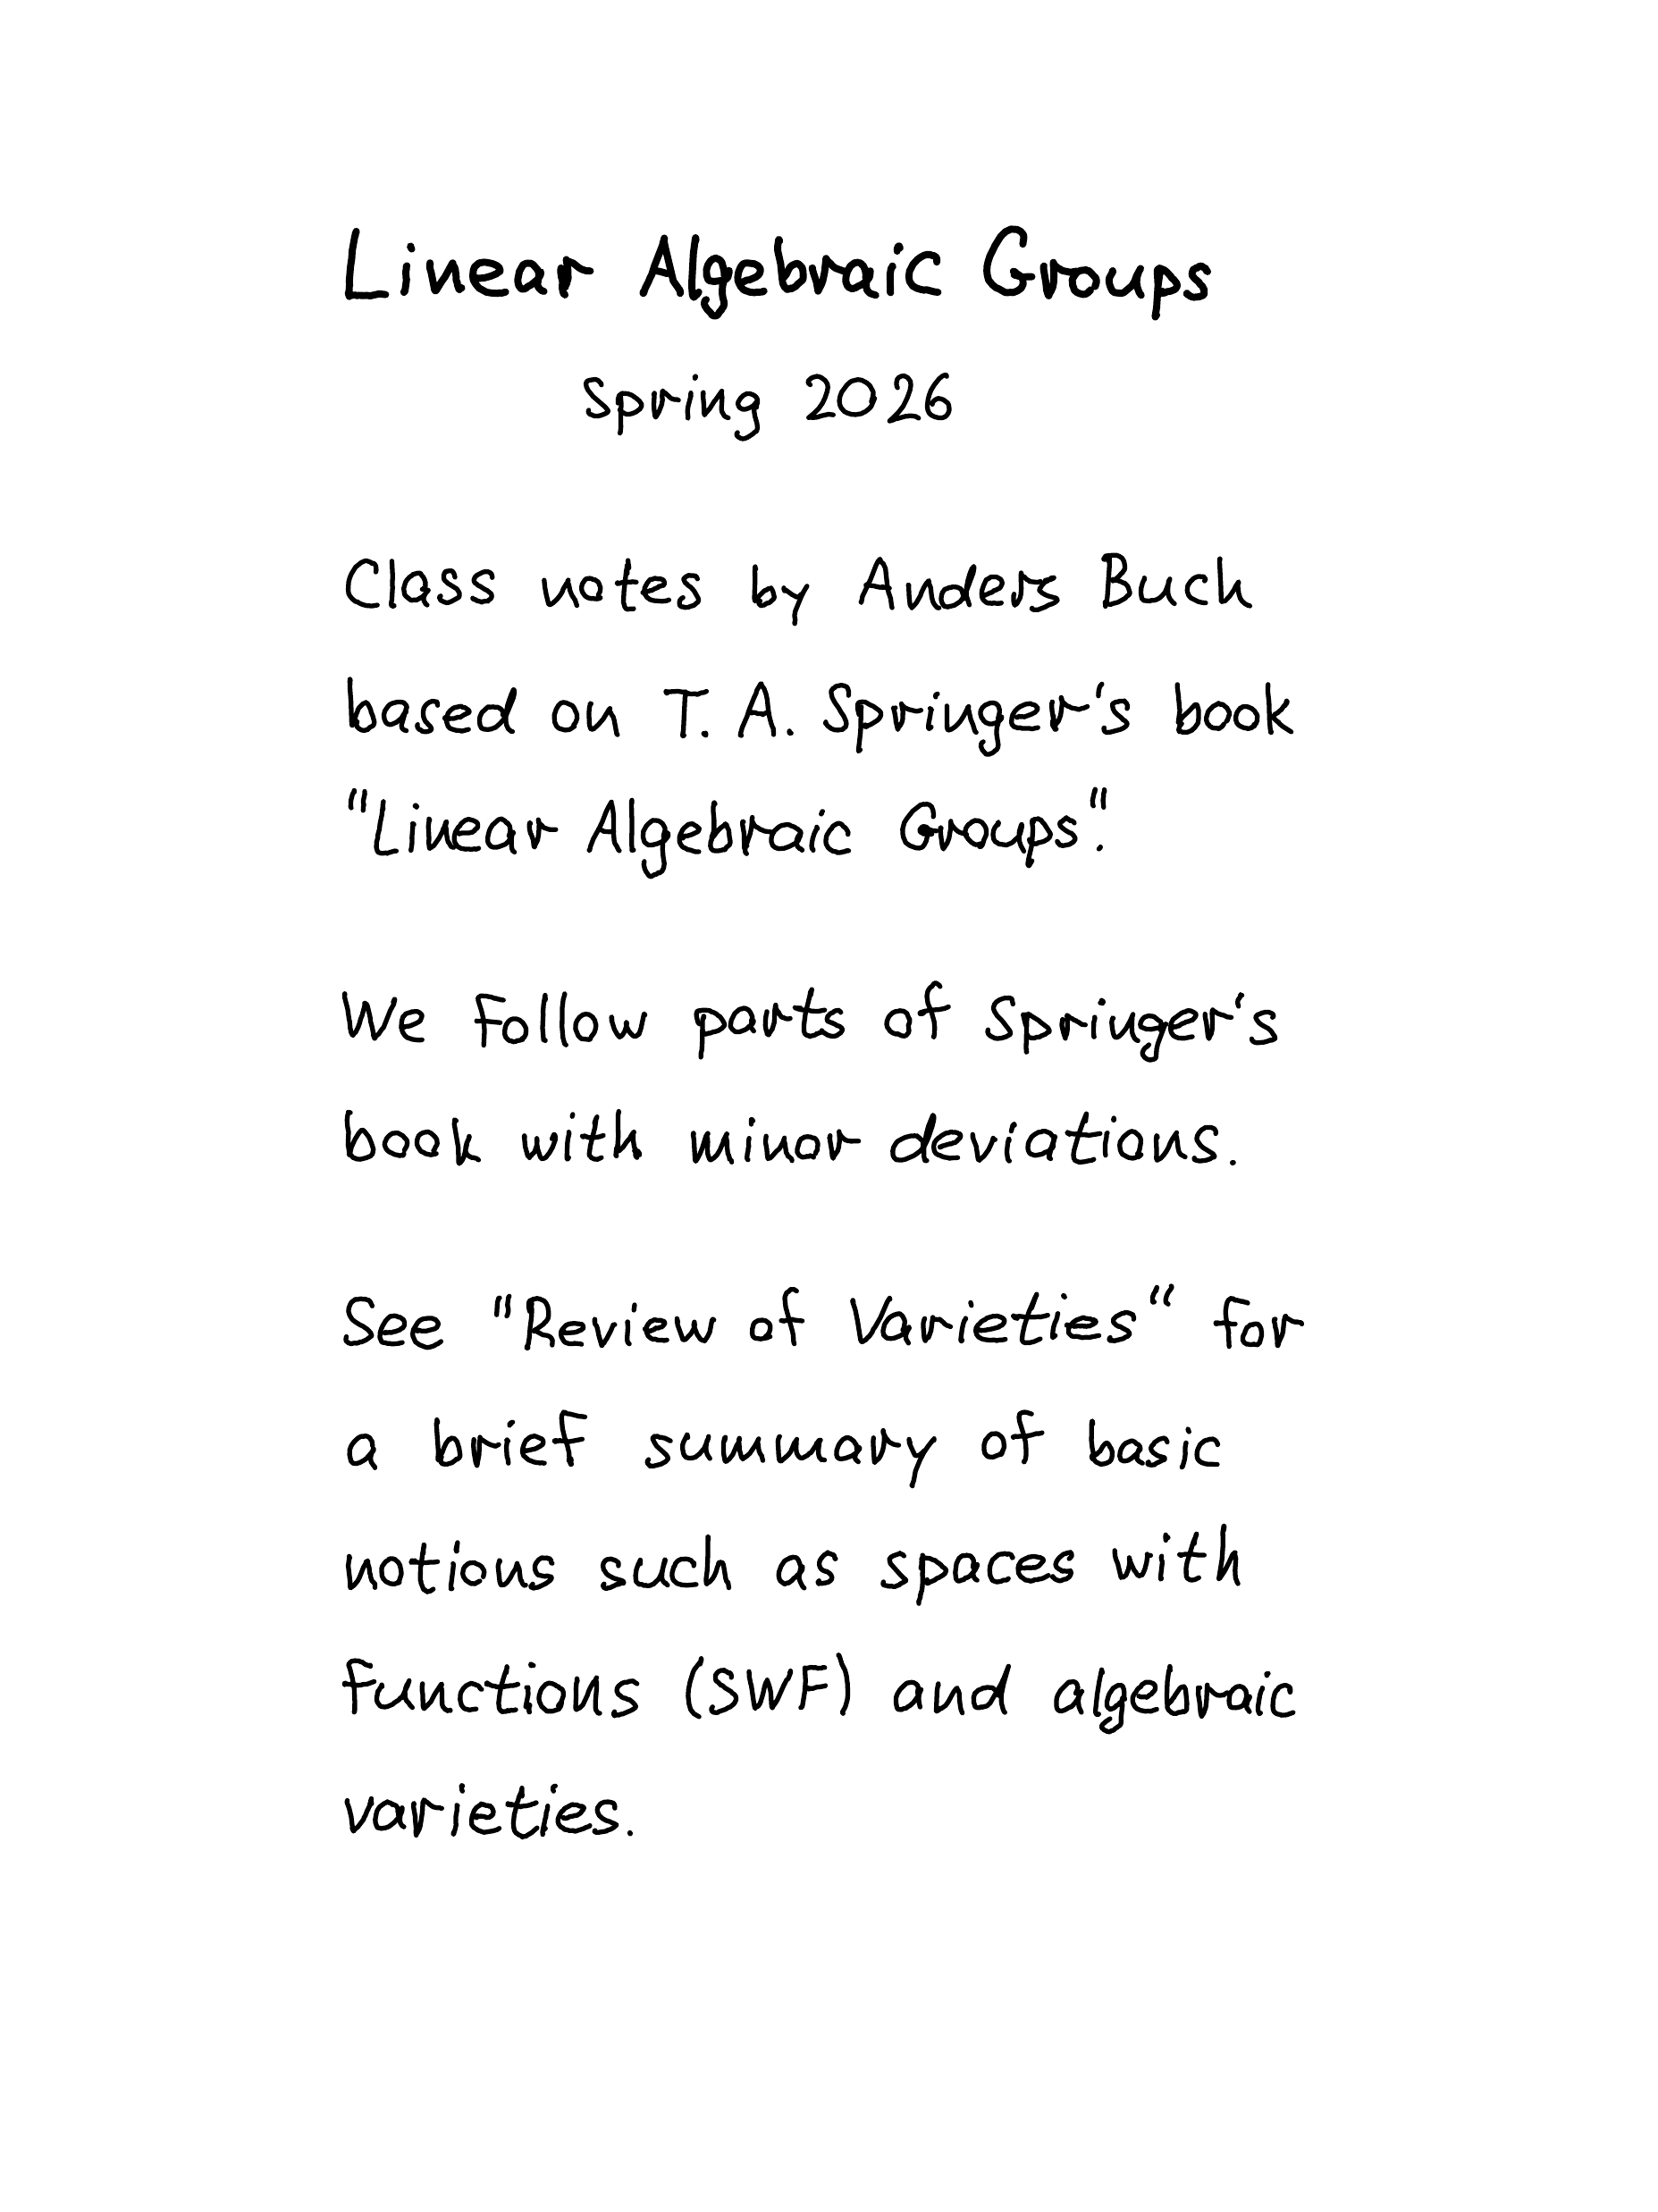 Linear Algebraic Groups
Spring 2026
Class notes by Anders Buch
based on T. A. Springer's book
"Linear Algebraic Groups".
We follow parts of Springer's
book with minor deviations.
See "Review of Varieties" for
a brief summary of basic
notions such as spaces with
functions (SWF) and algebraic
varieties.